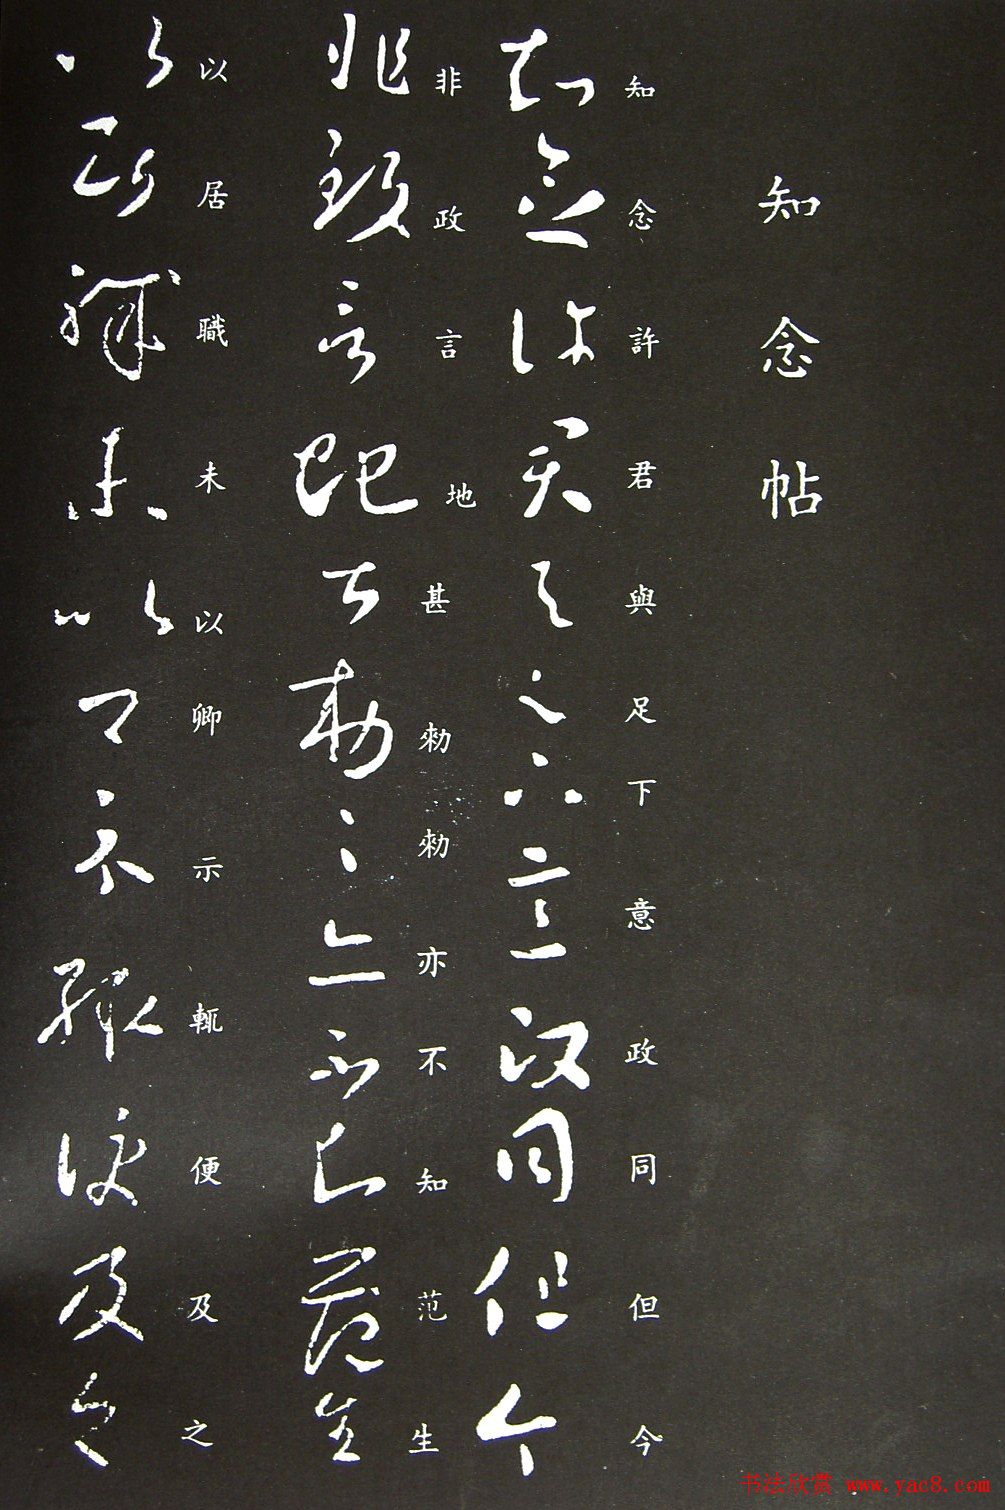 知念帖
知念許君與足下意政同但今
非政言地甚勑勑亦不知范生
以居職未以卿示輒便及之
书法欣赏 www.yac8.com